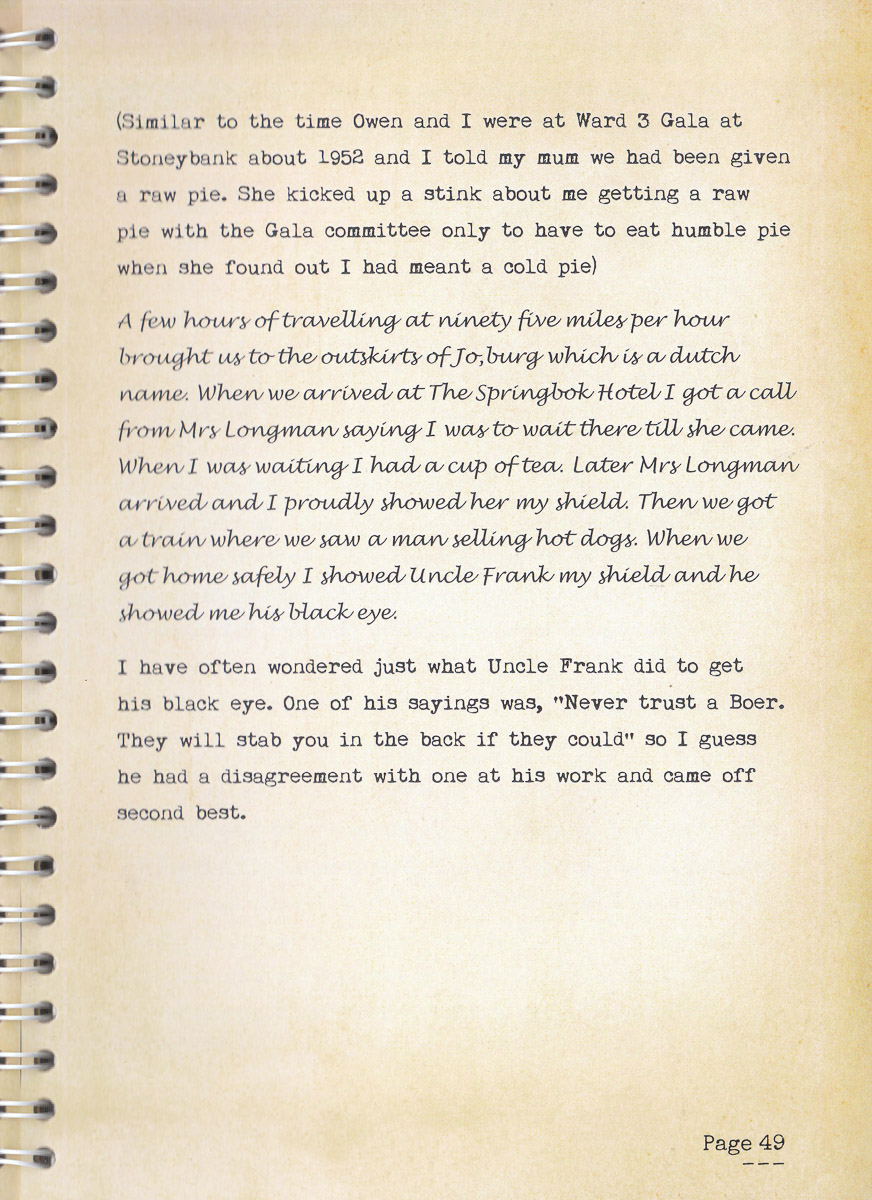 (Similar to the time Owen and I were at Ward 3 Gala at
Stoneybank about 1952 and I told my mum we had been given
a raw pie. She kicked up a stink about me getting a raw
pie with the Gala committee only to have to eat humble pie
when she found out I had meant a cold pie)
A few hours of travelling at ninety five miles per hour
brought us to the outskirts of Jo,burg which is a dutch
name. When we arrived at The Springbok Hotel I got a call
from Mrs Longman saying I was to wait there till she came.
When I was waiting I had a cup of tea. Later Mrs Longman
arrived and I proudly showed her my shield. Then we got
a train where we saw a man selling hot dogs. When we
got home safely I showed Uncle Frank my shield and he
showed me his black eye.
I have often wondered just what Uncle Frank did to get
his black eye. One of his sayings was, "Never trust a Boer.
They will stab you in the back if they could" so I guess
he had a disagreement with one at his work and came off
second best.
Page 49
---